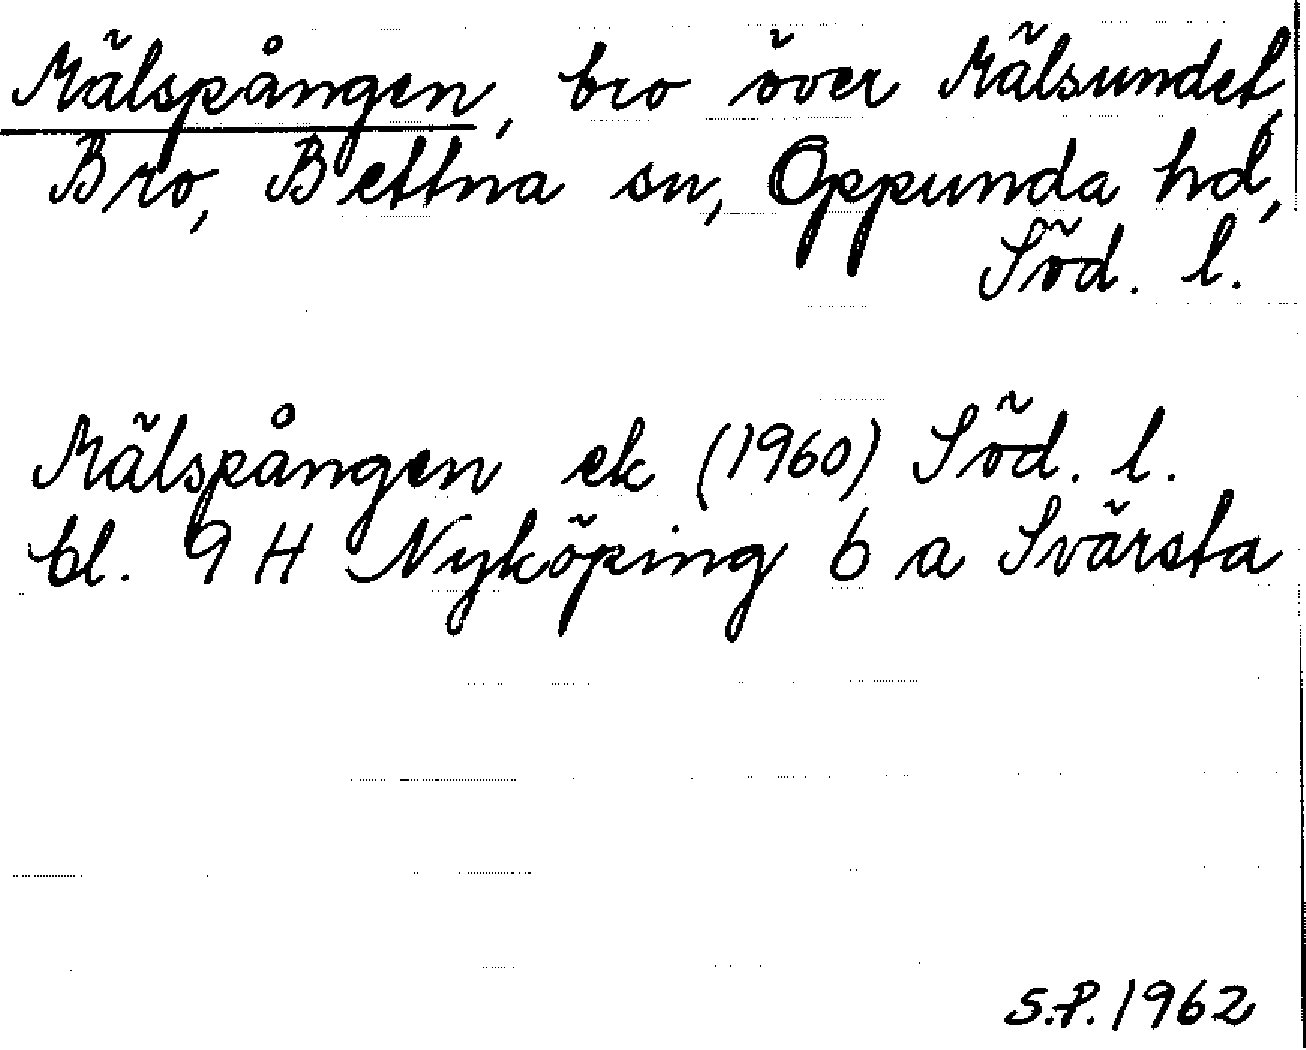 Mälspången, bro över Mälsundet,
Bro, Bettna sn, Oppunda hd,
Söd. l.
Mälspången ek (1960) Söd. l.
bl. 9 H Nyköping 6 a Svärsta
S.P. 1962